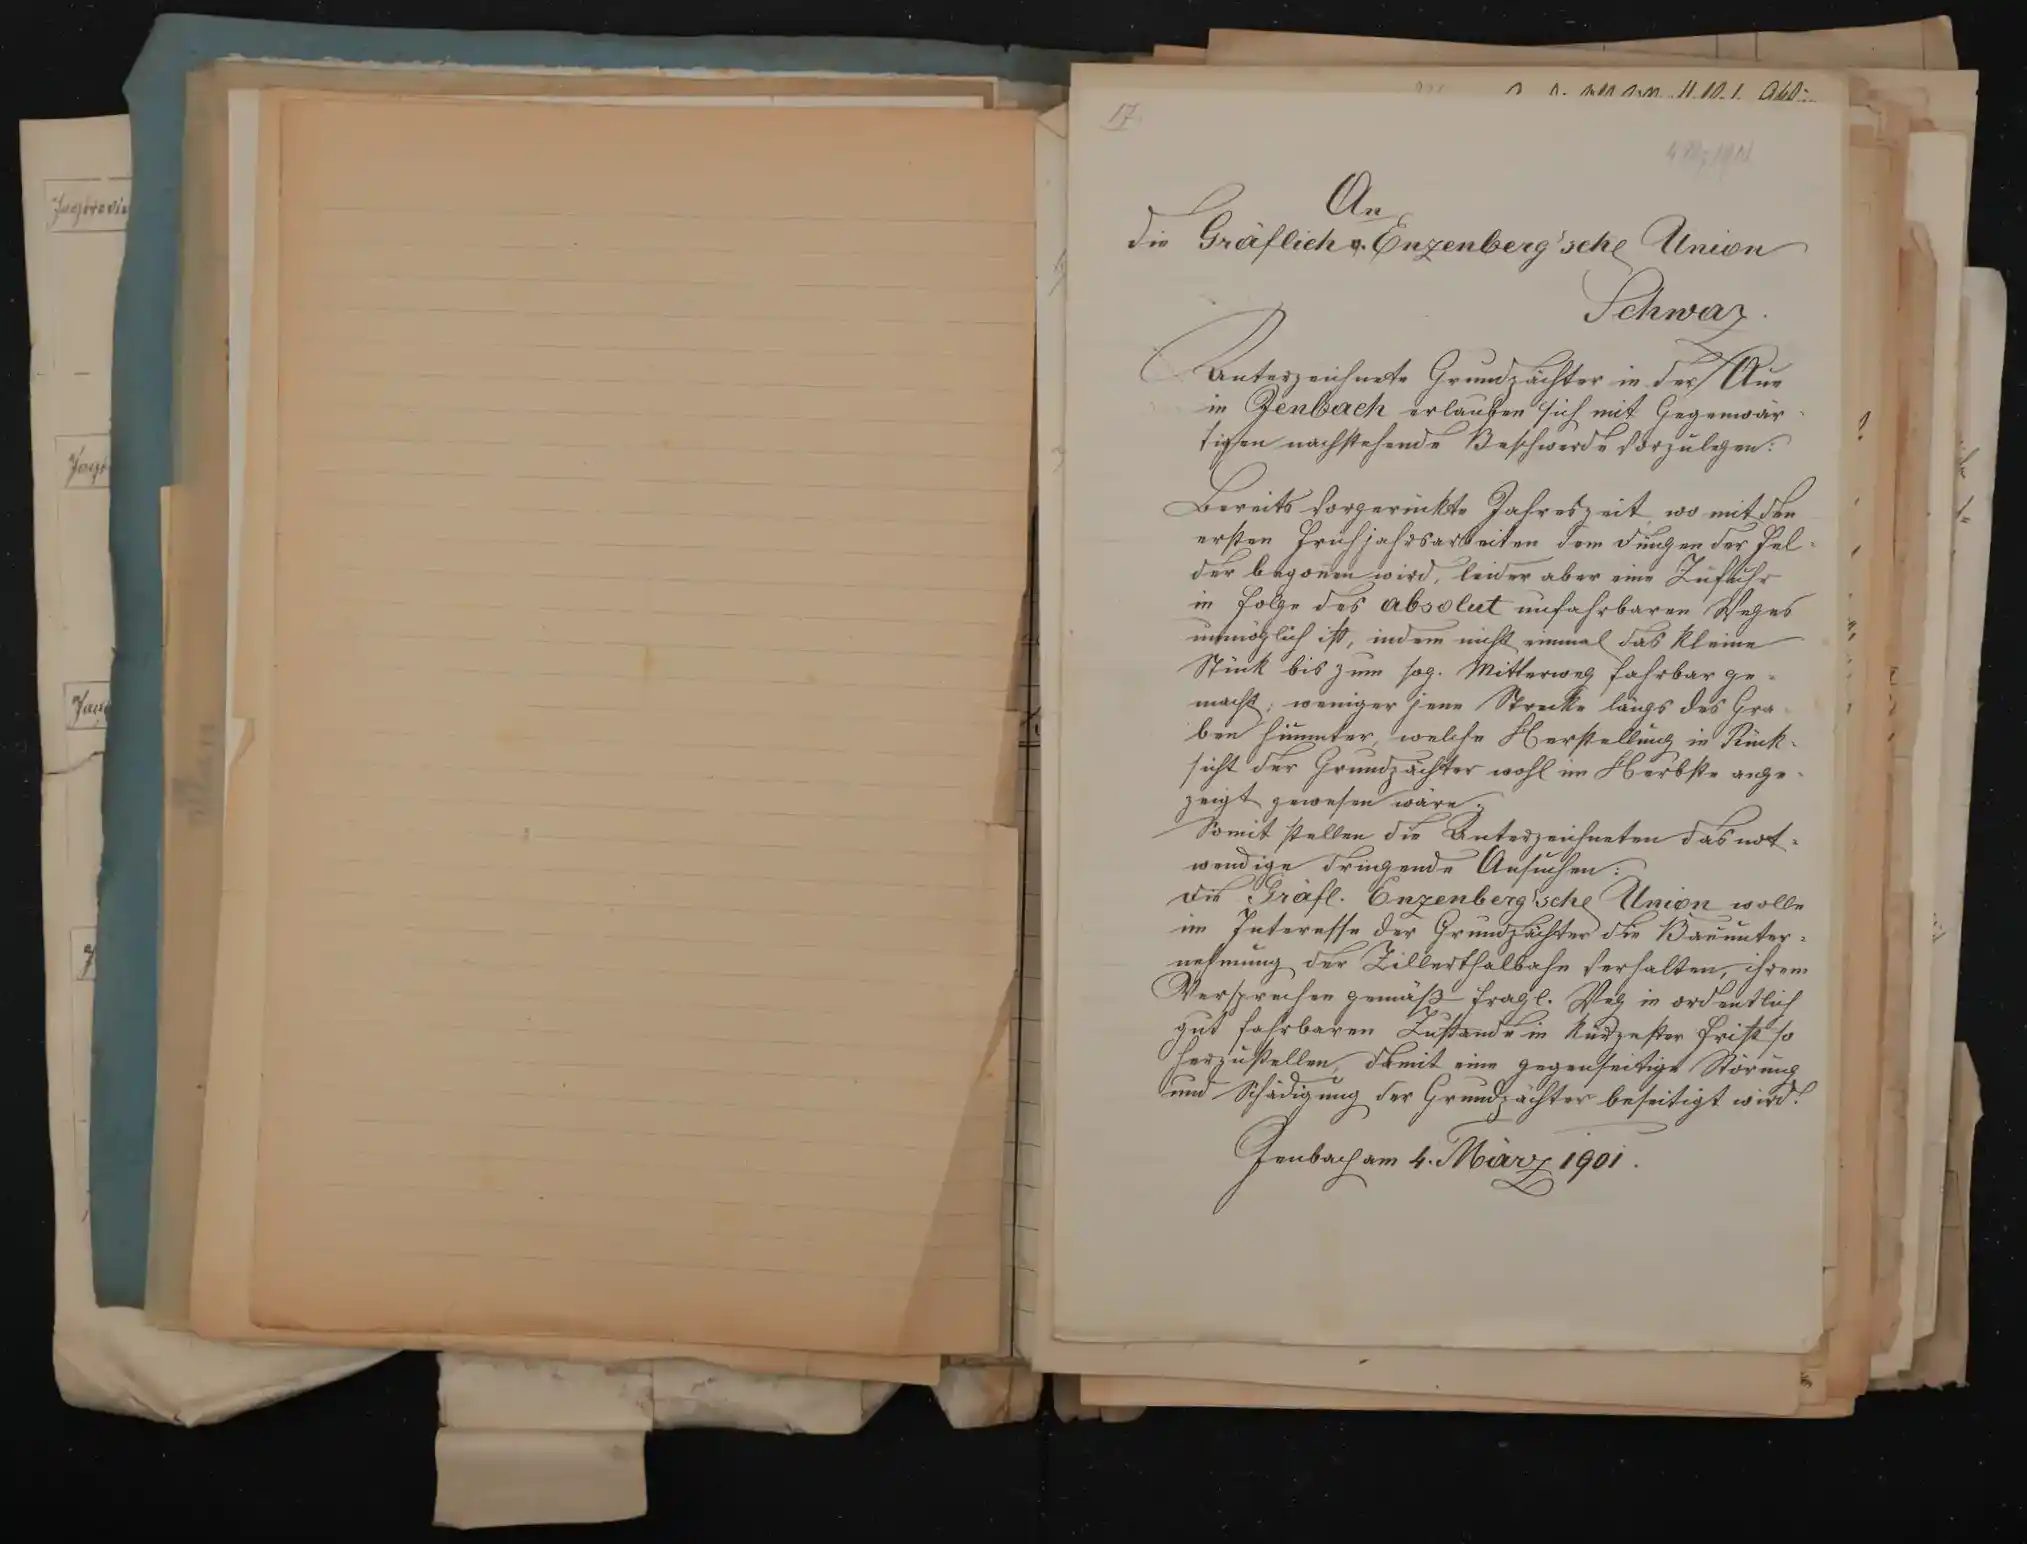 17.
An
die Gräflich v. Enzenberg'sche Union
Schwaz.
Unterzeichnete Grundpächter in der Aue
in Jenbach erlauben sich mit Gegenwär-
tigen nachstehende Beschwerde vorzulegen:
Bereits vorgerückte Jahreszeit, wo mit den
ersten Frühjahrsarbeiten dem Düngen der Fel-
der begonnen wird, leider aber eine Zufuhr
in Folge des absolut unfahrbaren Weges
unmöglich ist, indem nicht einmal das kleine
Stück bis zum sog. Mitterweg fahrbar ge-
macht, weniger jene Strecke längs des Gra-
ben hinunter, welche Herstellung in Rück-
sicht der Grundpächter wohl im Herbste ange-
zeigt gewesen wäre.
Somit stellen die Unterzeichneten das not-
wendige dringende Ansuchen:
Die Gräfl. Enzenberg'sche Union wolle
im Interesse der Grundpächter die Bauunter-
nehmung der Zillerthalbahn verhalten, ihrem
Versprechen gemäß fragl. Weg in ordentlich
gut fahrbaren Zustande in kürzester Frist so
herzustellen, damit eine gegenseitige Störung
und Schädigung der Grundpächter beseitigt wird!
Jenbach am 4. März 1901.